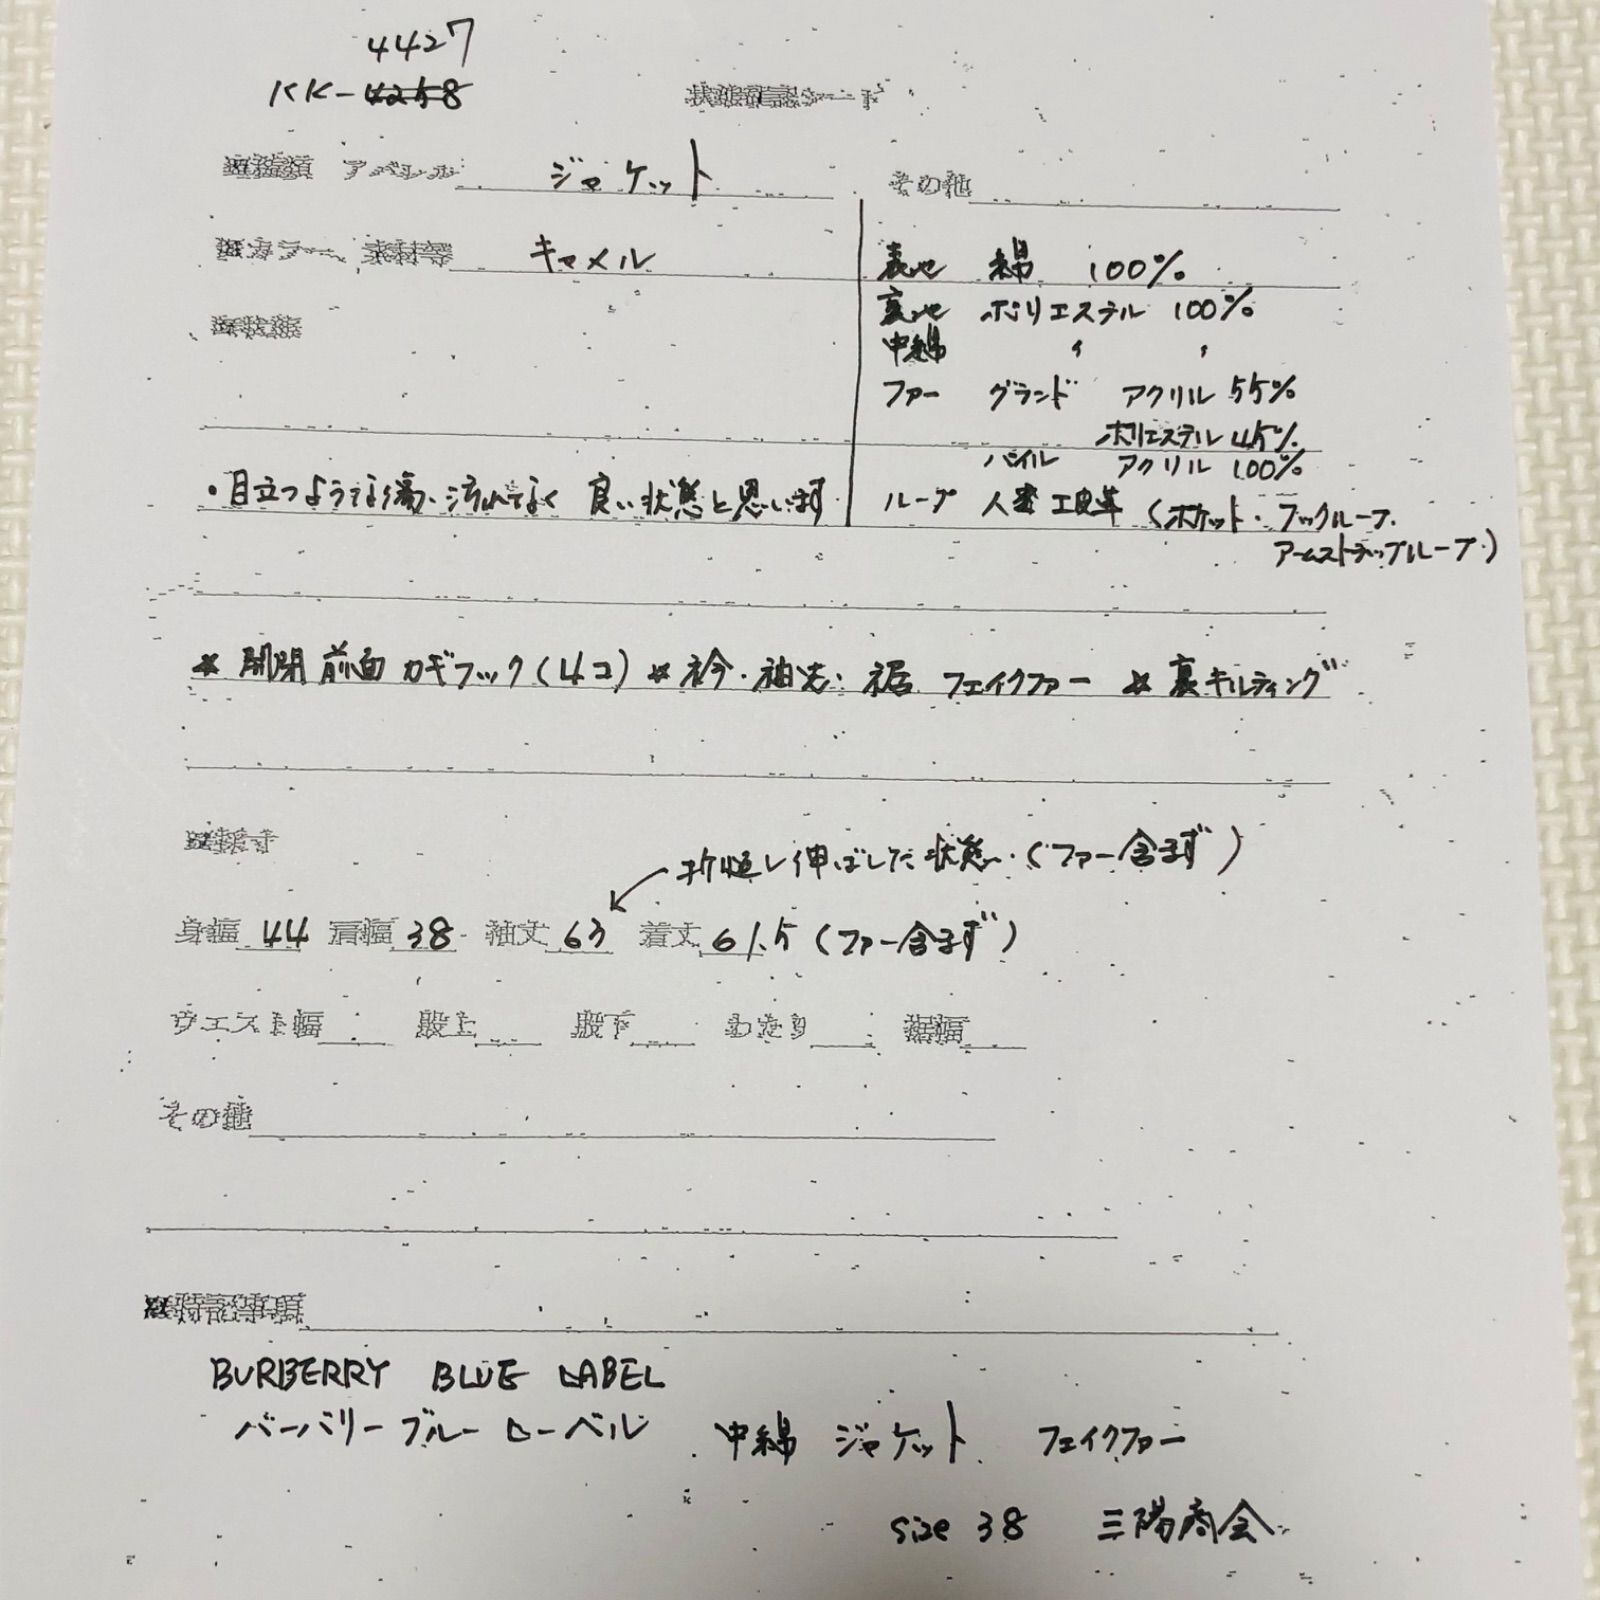 4427
KK-4258
状態確認シート
アパレル ジャケット その他
カラー 素材等 キャメル
表地 綿 100%
裏地 ポリエステル 100%
中綿 〃 〃
ファー グランド アクリル 55%
ポリエステル 45%
パイル アクリル 100%
ループ 人工皮革 (ポケット・フックループ・
アームストラップループ)
・目立つような傷・汚れなく 良い状態と思います
* 開閉 前面 カギフック(4コ) * 衿・袖先・裾 フェイクファー * 裏キルティング
採寸
折返し伸ばした状態・(ファー含まず)
身幅 44 肩幅 38 袖丈 63 着丈 61.5 (ファー含まず)
ウエスト幅 股上 股下 わたり 裾幅
その他
特記事項
BURBERRY BLUE LABEL
バーバリーブルーレーベル 中綿 ジャケット フェイクファー
size 38 三陽商会